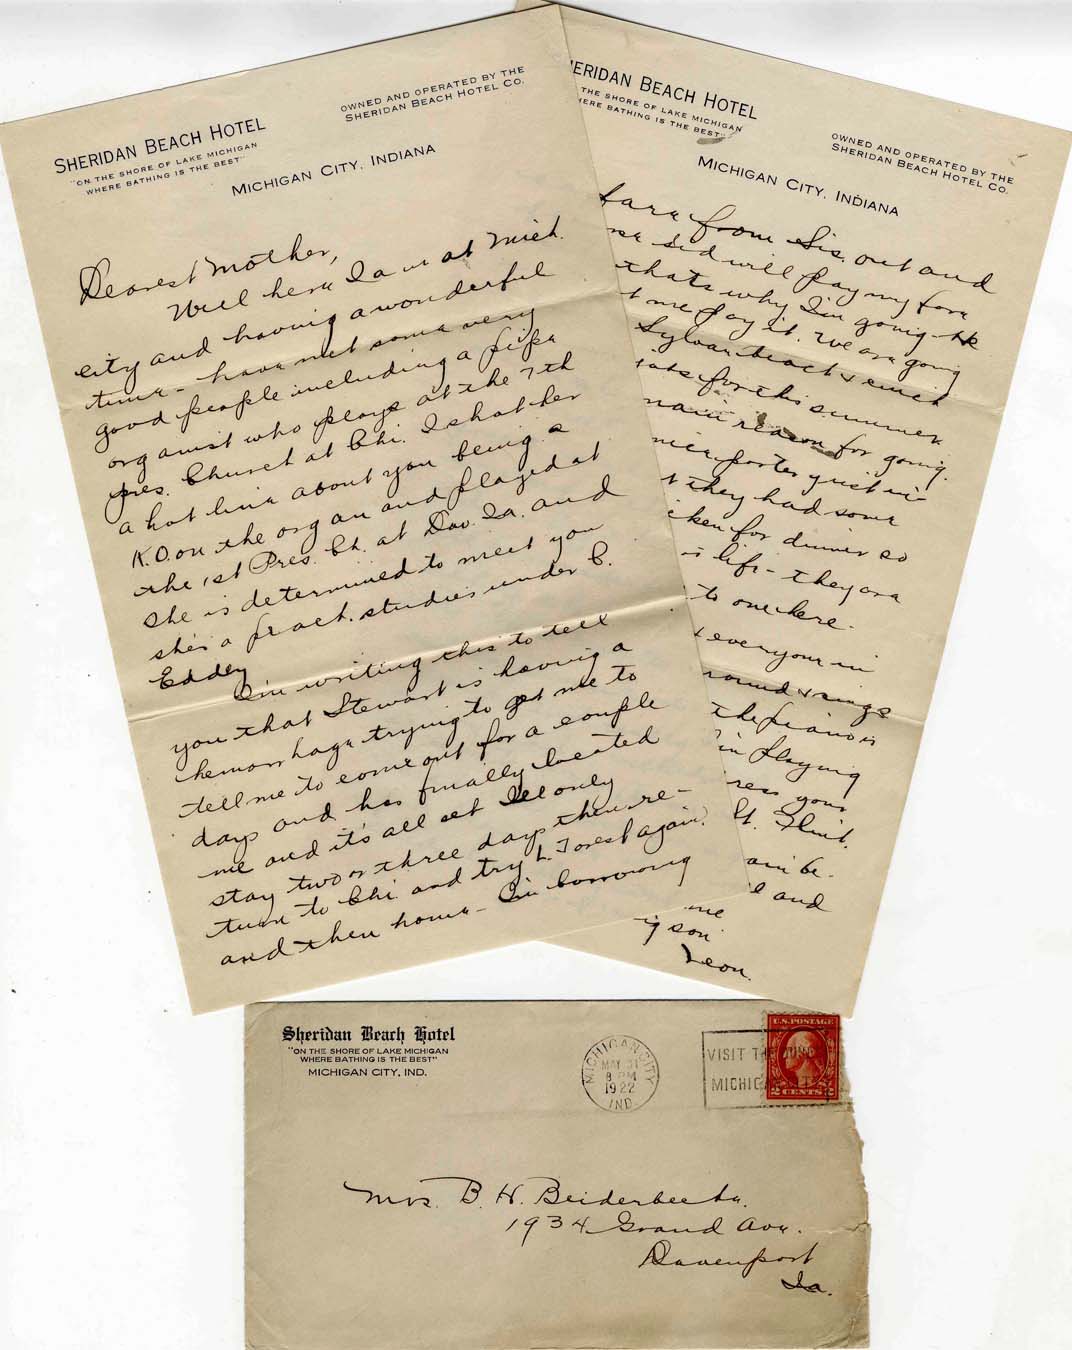 SHERIDAN BEACH HOTEL
"ON THE SHORE OF LAKE MICHIGAN
WHERE BATHING IS THE BEST"
OWNED AND OPERATED BY THE
SHERIDAN BEACH HOTEL CO.
MICHIGAN CITY, INDIANA
Dearest Mother,
Well here I am at Mich.
city and having a wonderful
time - have met some very
good people including a pipe
organist who plays at the 7th
pres. Church at Chi. I shot her
a hot line about you being a
K.O. on the organ and played at
the 1st Pres. Ch. at Dav. Ia. and
she is determined to meet you
she's a pract. studies under C.
Eddey
I'm writing this to tell
you that Stewart is having a
hemorrhage trying to get me to
tell me to come out for a couple
days and has finally located
me and it's all set I'll only
stay two or three days then re-
turn to Chi and try L. Forest again.
and then home - I'm borrowing
ERIDAN BEACH HOTEL
THE SHORE OF LAKE MICHIGAN
ERE BATHING IS THE BEST"
OWNED AND OPERATED BY THE
SHERIDAN BEACH HOTEL CO.
MICHIGAN CITY, INDIANA
fare from Sis. out and
Sid will pay my fare
thats why I'm going - He
me pay it. We are going
Sylvan beach & cinch
for this summer
main reason for going.
porter just in
they had some
cken for dinner so
life - they are
to one here.
everyone in
round & sings
the piano is
I'm playing
ress your
St. Flint.
am be-
and
me
son
Leon.
Sheridan Beach Hotel
"ON THE SHORE OF LAKE MICHIGAN
WHERE BATHING IS THE BEST"
MICHIGAN CITY, IND.
MICHIGAN CITY
MAY 31
8 PM
1922
IND.
VISIT THE DUNES
MICHIGAN CITY
U.S. POSTAGE
2 CENTS 2
Mrs. B. H. Beiderbecke.
1934 Grand Ave.
Davenport
Ia.